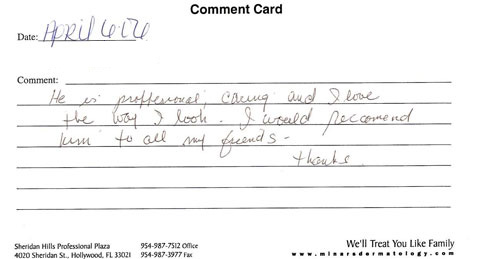 Comment Card
Date: APRIL 6 176
Comment:
He is proffesional, caring and I love
the way I look. I would reccomend
him to all my friends.
thanks
Sheridan Hills Professional Plaza 954-987-7512 Office We'll Treat You Like Family
4020 Sheridan St., Hollywood, FL 33021 954-987-3977 Fax www.minardermatology.com